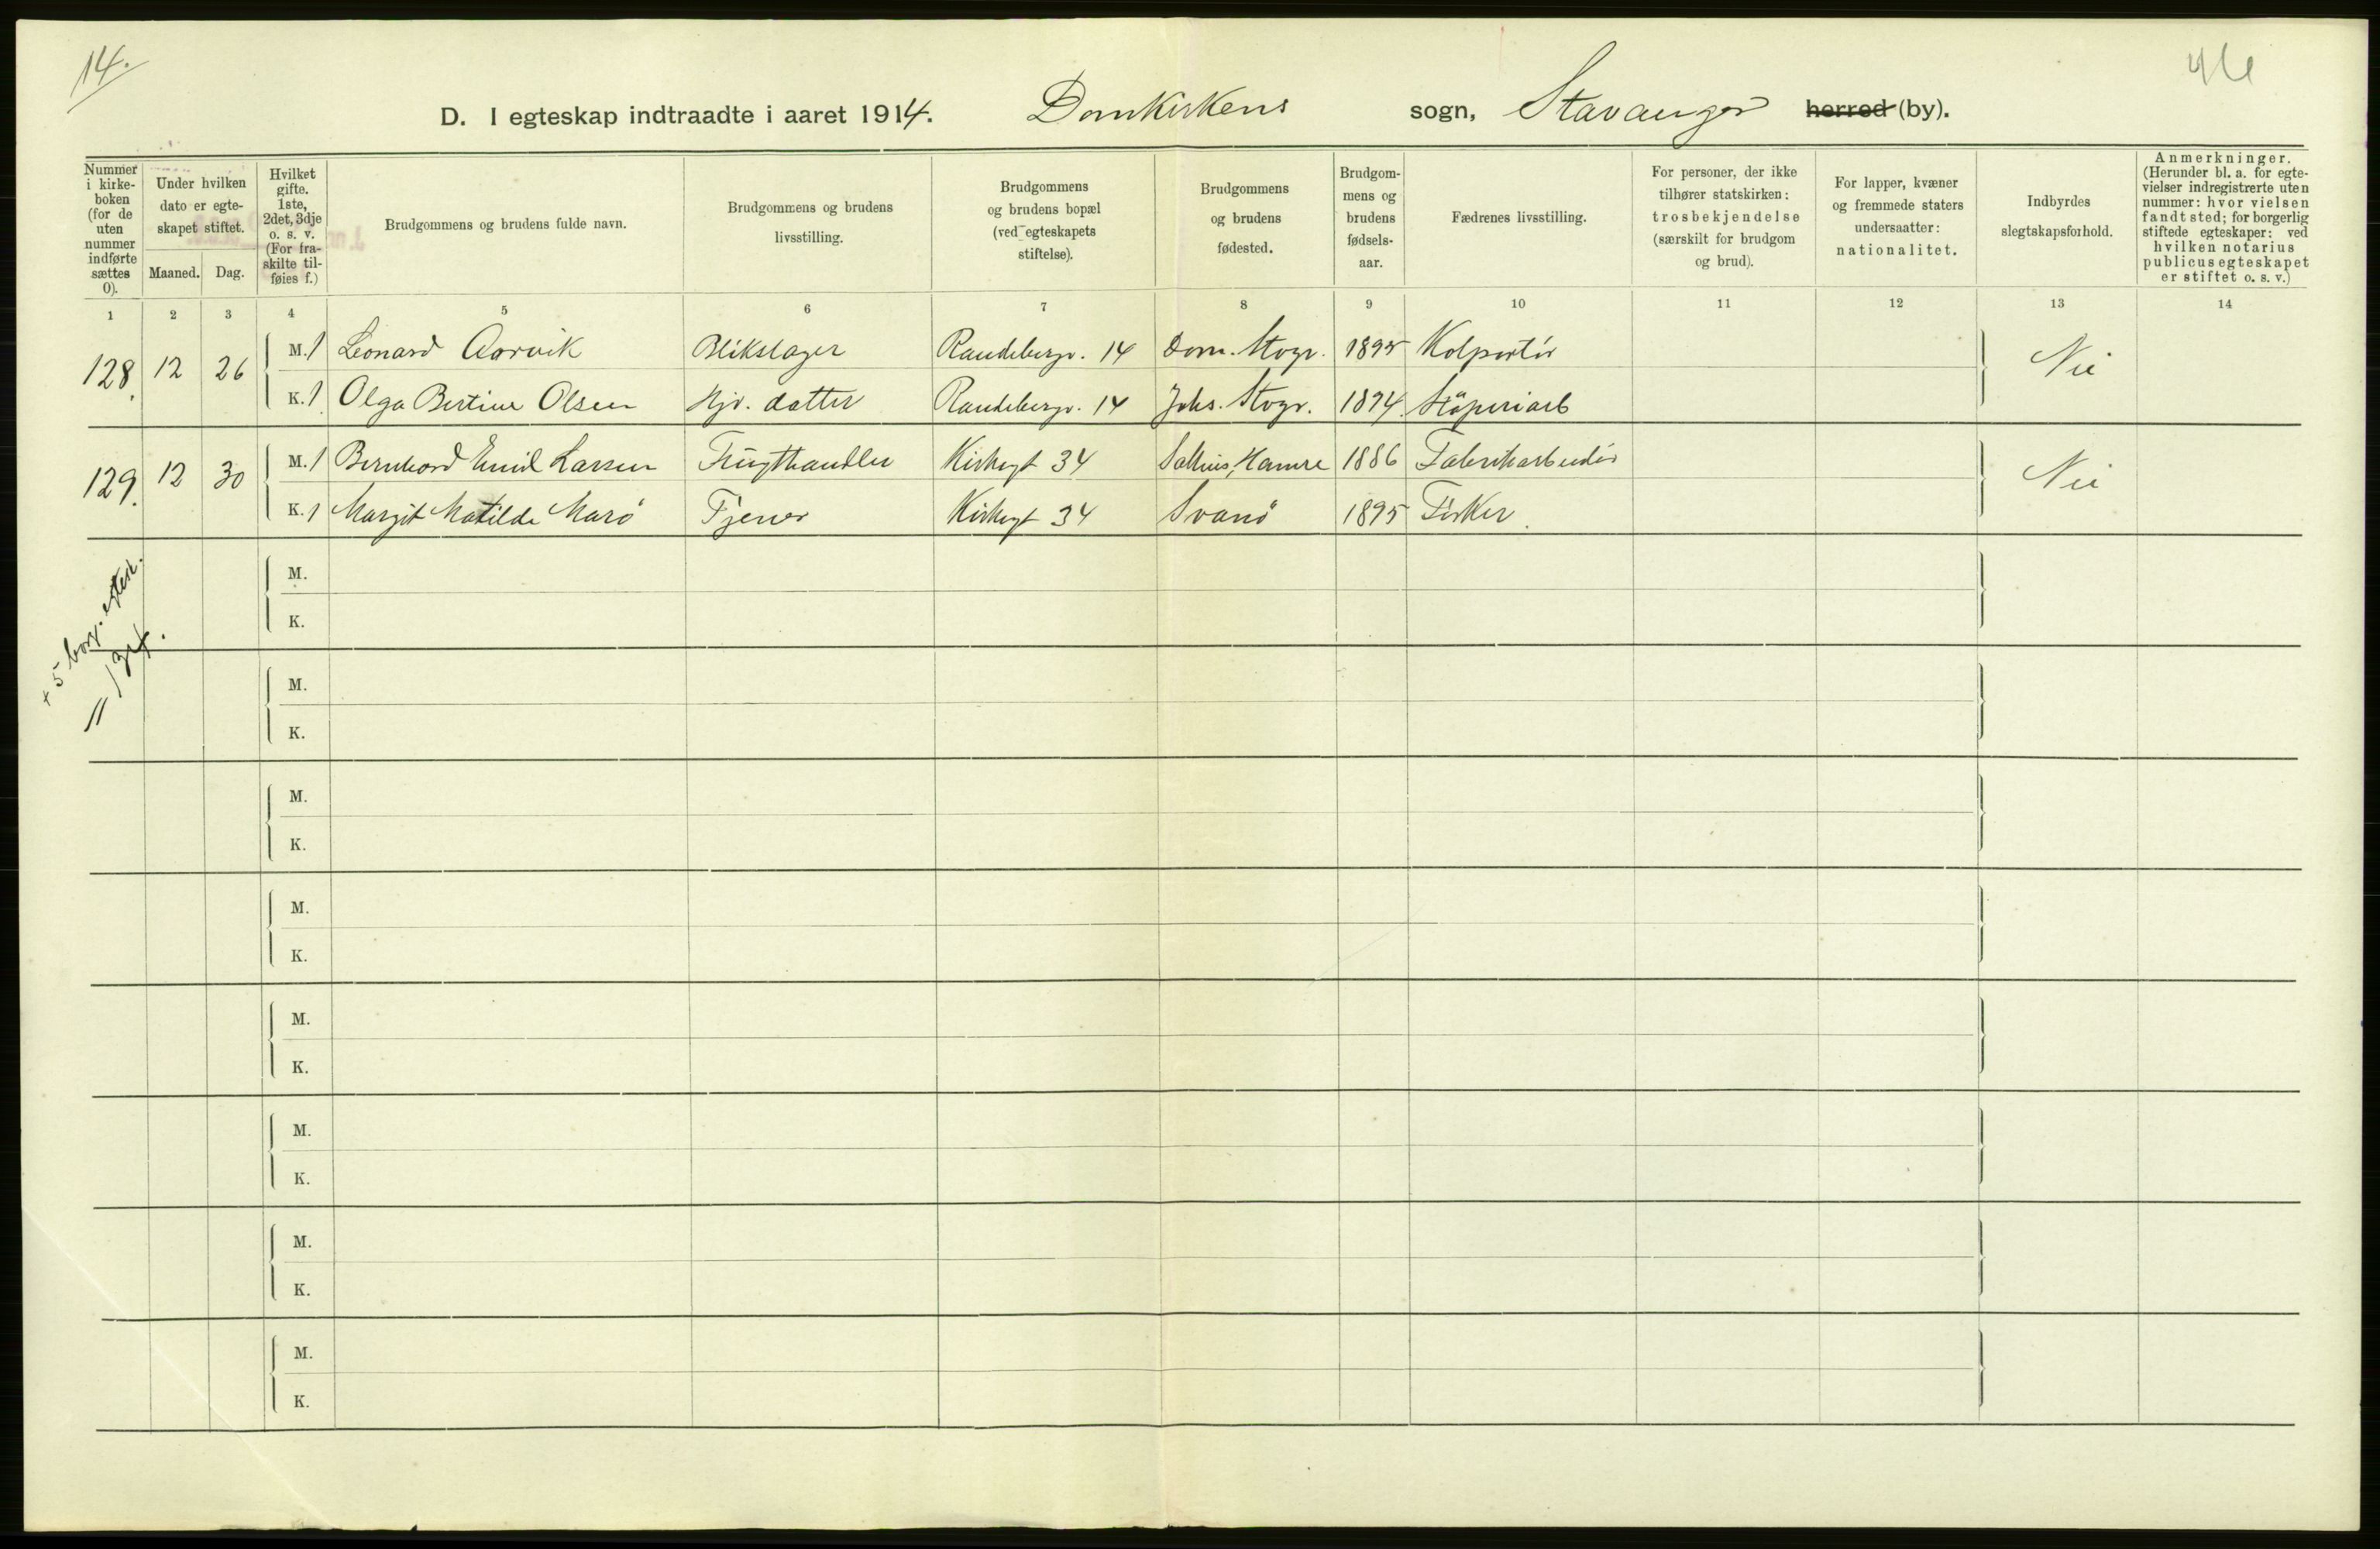 14.
D. I egteskap indtraadte i aaret 1914. Domkirkens sogn, Stavanger herred (by).
Nummer i kirke-boken (for de uten nummer indførte sættes 0).
Under hvilken dato er egte-skapet stiftet.
Maaned. Dag.
Hvilket gifte. 1ste, 2det, 3dje o. s. v. (For fra-skilte til-føies f.)
Brudgommens og brudens fulde navn.
Brudgommens og brudens livsstilling.
Brudgommens og brudens bopæl (ved egteskapets stiftelse).
Brudgommens og brudens fødested.
Brudgom-mens og brudens fødsels-aar.
Fædrenes livsstilling.
For personer, der ikke tilhører statskirken: trosbekjendelse (særskilt for brudgom og brud).
For lapper, kvæner og fremmede staters undersaatter: nationalitet.
Indbyrdes slegtskapsforhold.
Anmerkninger. (Herunder bl. a. for egte-vielser indregistrerte uten nummer: hvor vielsen fandt sted; for borgerlig stiftede egteskaper: ved hvilken notarius publicus egteskapet er stiftet o. s. v.)
1 2 3 4 5 6 7 8 9 10 11 12 13 14
128. 12 26 M. 1 Leonard Aarvik Blikslager Randebergv. 14 Dom. Stvgr. 1895 Kolportör Nei
K. 1 Olga Bertine Olsen Hjv. datter Randebergv. 14 Johs. Stvgr. 1894. Stöperiarb
129. 12 30 M. 1 Bernhard Emil Larsen Frugthandler Kirkegt 34 Salhus, Hamre 1886 Fabrikarbeider Nei
K. 1 Margit Matilde Marö Tjener Kirkegt 34 Svanö 1895 Fisker
+ 5 borg. ektesk.
134.
M.
K.
M.
K.
M.
K.
M.
K.
M.
K.
M.
K.
M.
K.
M.
K.